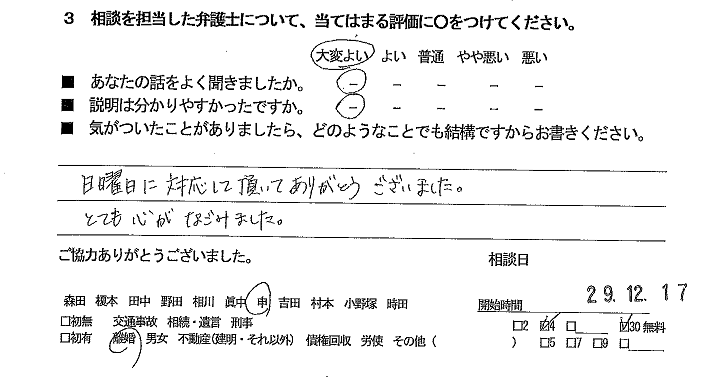 3 相談を担当した弁護士について、当てはまる評価に〇をつけてください。
大変よい よい 普通 やや悪い 悪い
■ あなたの話をよく聞きましたか。 － － － － －
■ 説明は分かりやすかったですか。 － － － － －
■ 気がついたことがありましたら、どのようなことでも結構ですからお書きください。
日曜日に対応して頂いてありがとうございました。
とても心がなごみました。
ご協力ありがとうございました。 相談日
森田 榎本 田中 野田 相川 眞中 申 吉田 村本 小野塚 時田 開始時間 29.12.17
□初無 交通事故 相続・遺言 刑事 □2 ☑4 □____ ☑30 無料
□初有 離婚 男女 不動産(建明・それ以外) 債権回収 労使 その他 ( ) □5 □7 □9 □____